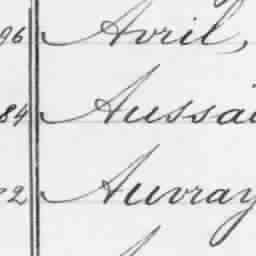 96 Avril,
84 Aussa
72 Auvray